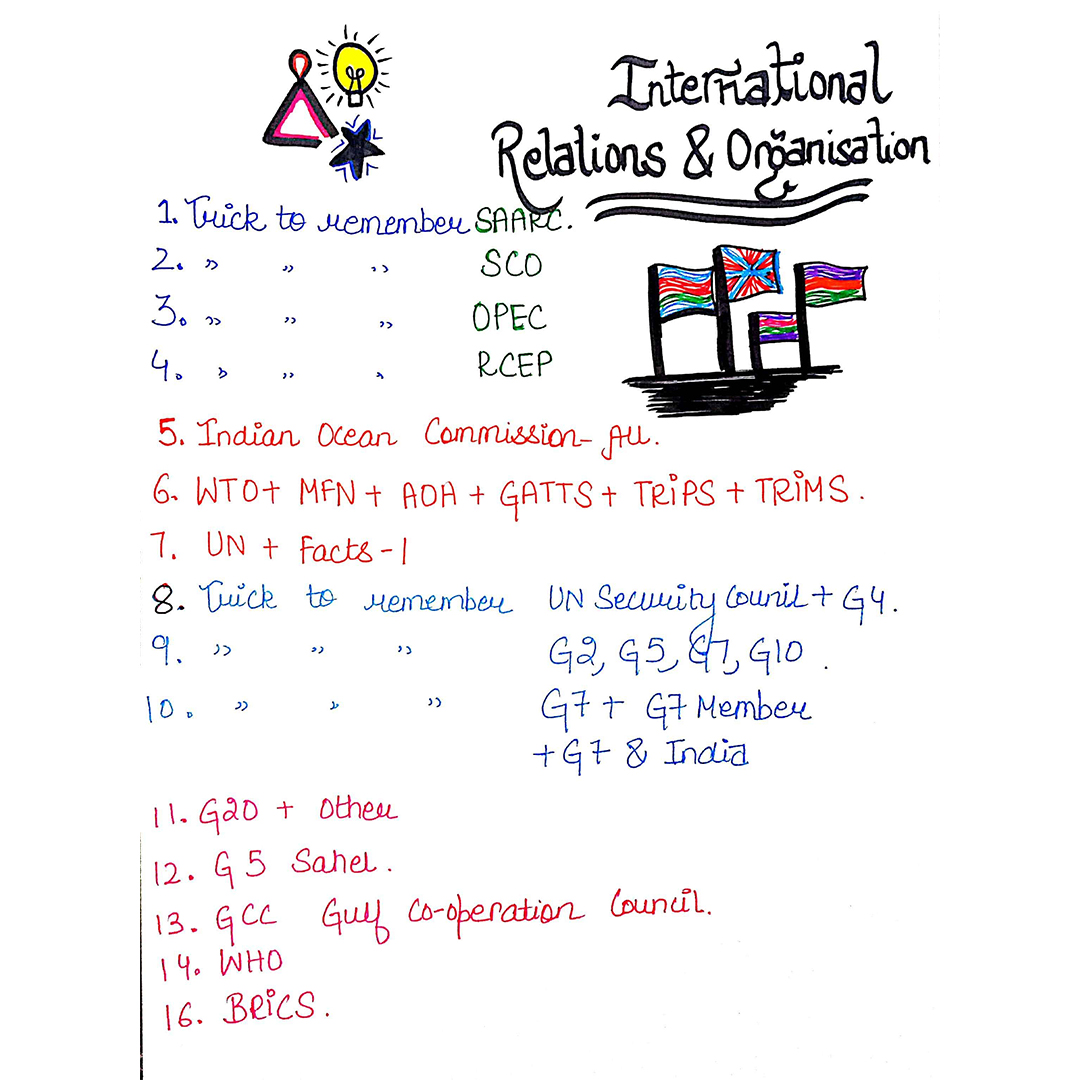 International
Relations & Organisation
1. Trick to remember SAARC.
2. " " " SCO
3. " " " OPEC
4. " " " RCEP
5. Indian Ocean Commission - All.
6. WTO + MFN + AOA + GATTS + TRiPS + TRiMS.
7. UN + Facts - 1
8. Trick to remember UN Security Counil + G4.
9. " " " G2, G5, G7, G10.
10. " " " G7 + G7 Member
+ G7 & India
11. G20 + Other
12. G5 Sahel.
13. GCC Gulf Co-operation Council.
14. WHO
16. BRiCS.